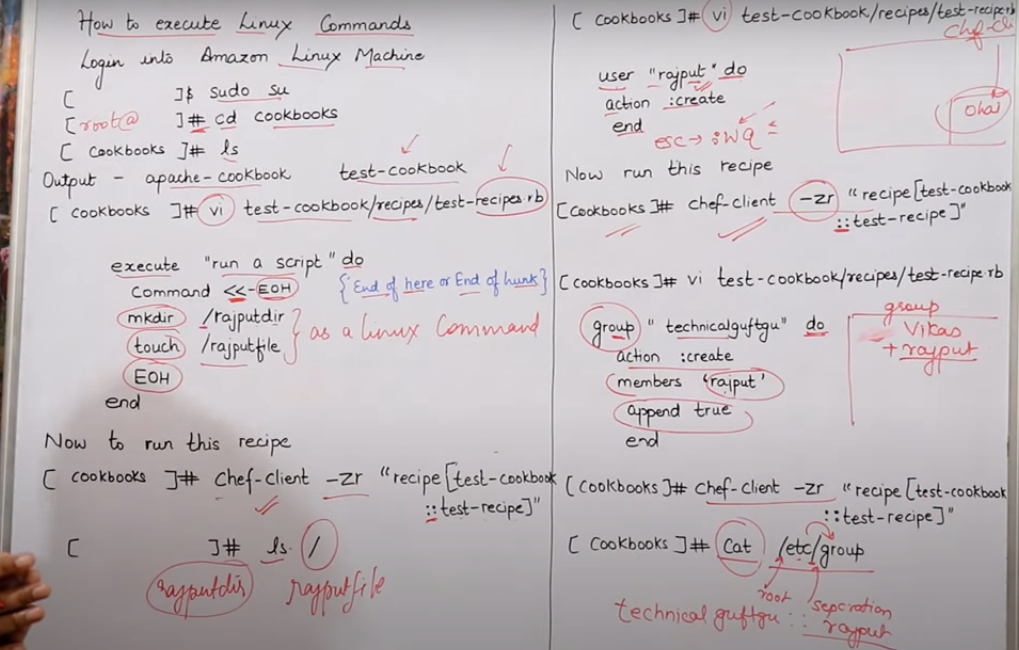 How to execute Linux Commands
Login into Amazon Linux Machine
[ ]$ sudo su
[root@ ]# cd cookbooks
[ cookbooks ]# ls
Output - apache-cookbook test-cookbook
[ cookbooks ]# vi test-cookbook/recipes/test-recipes.rb
execute "run a script" do
Command <<-EOH {'End of here or End of hunk}
mkdir /rajputdir
touch /rajputfile
} as a linux Command
EOH
end
Now to run this recipe
[ cookbooks ]# chef-client -zr "recipe[test-cookbook
::test-recipe]"
[ ]# ls /
rajputdir rajputfile
[ cookbooks ]# vi test-cookbook/recipes/test-recipe.rb
user "rajput" do
action :create
end
esc → :wq
chef-cli
Ohai
Now run this recipe
[cookbooks]# chef-client -zr "recipe[test-cookbook
::test-recipe]"
[cookbooks]# vi test-cookbook/recipes/test-recipe.rb
group "technicalguftgu" do
action :create
members 'rajput'
append true
end
group
Vikas
+ rajput
[cookbooks]# Chef-client -zr "recipe[test-cookbook
::test-recipe]"
[ Cookbooks ]# Cat /etc/group
root seperation
technical guftgu :: rajput